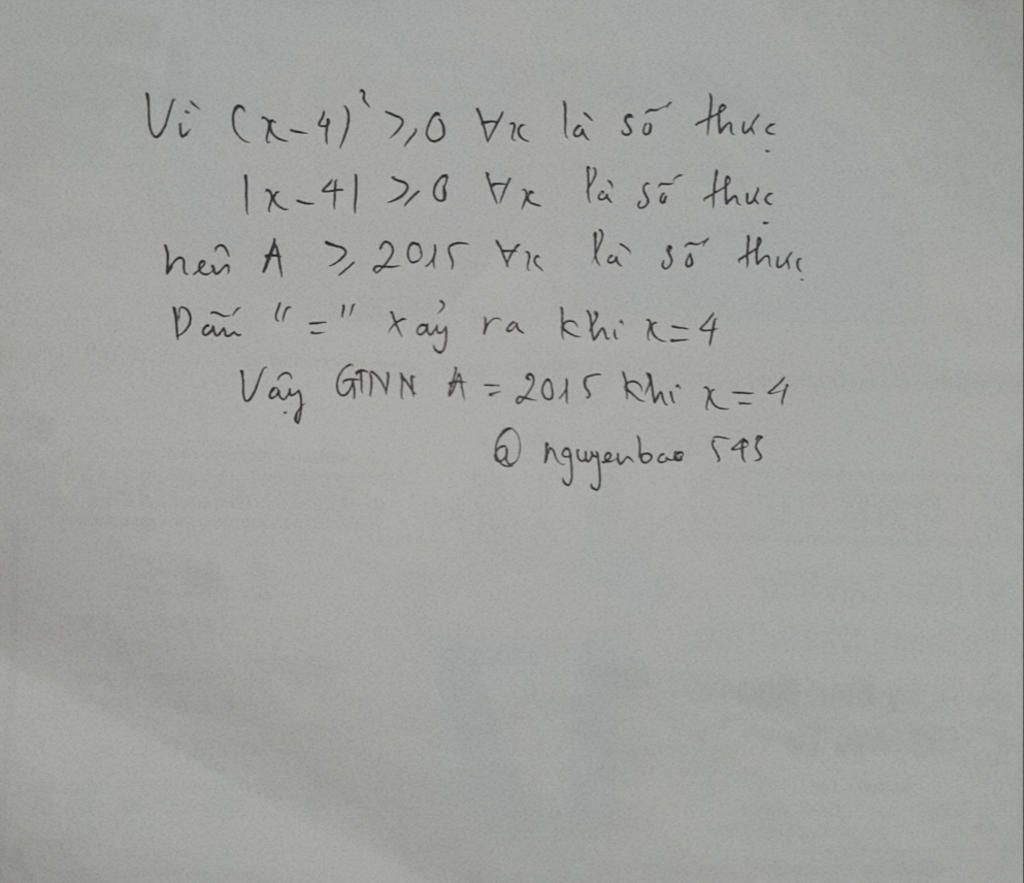 Vì (x-4)² ≥ 0 ∀x là số thực
|x-4| ≥ 0 ∀x là số thực
nên A ≥ 2015 ∀x là số thực
Dấu "=" xảy ra khi x=4
Vậy GTNN A = 2015 khi x=4
@ nguyenbao 545